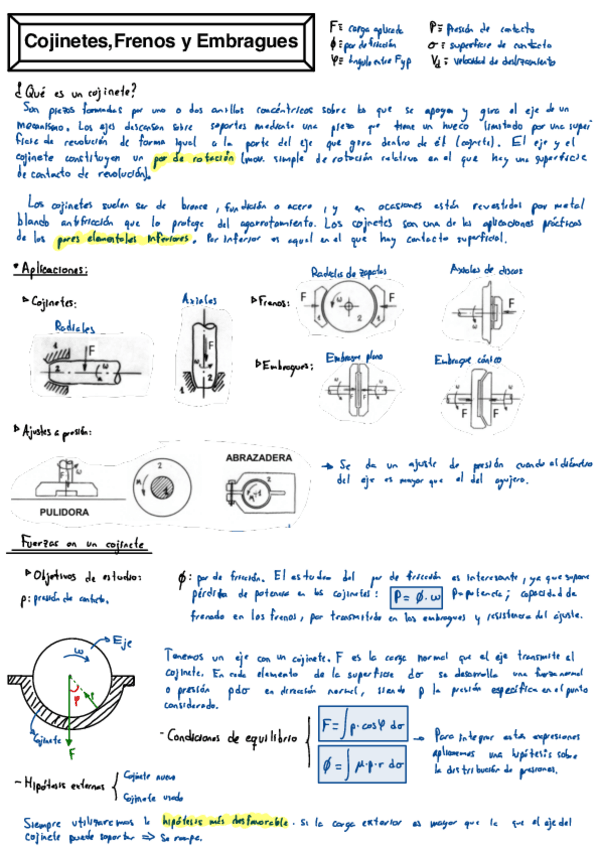 Cojinetes, Frenos y Embragues
F ≡ carga aplicada
P ≡ Presión de contacto
ϕ ≡ par de fricción
σ ≡ superficie de contacto
φ ≡ ángulo entre F y p
Vd ≡ velocidad de deslizamiento
¿Qué es un cojinete?
Son piezas formadas por uno o dos anillos concéntricos sobre los que se apoya y gira el eje de un
mecanismo. Los ejes descansan sobre soportes mediante una pieza que tiene un hueco limitado por una superficie
de revolución de forma igual a la parte del eje que gira dentro de él (cojinete). El eje y el
cojinete constituyen un par de rotación (mov. simple de rotación relativa en el que hay una superficie
de contacto de revolución).
Los cojinetes suelen ser de bronce, fundición o acero, y en ocasiones están revestidos por metal
blando antifricción que lo protege del agarrotamiento. Los cojinetes son una de las aplicaciones prácticas
de los pares elementales inferiores. Par inferior es aquel en el que hay contacto superficial.
• Aplicaciones:
▹ Cojinetes:
Radiales
Axiales
▹ Frenos:
Radiales de zapatas
Axiales de discos
▹ Embragues:
Embrague plano
Embrague cónico
▹ Ajustes a presión:
PULIDORA
ABRAZADERA
→ Se da un ajuste de presión cuando el diámetro
del eje es mayor que el del agujero.
Fuerzas en un cojinete
▹ Objetivos de estudio:
p: presión de contacto.
ϕ: par de fricción. El estudio del par de fricción es interesante, ya que supone
pérdida de potencia en los cojinetes: P = ϕ · ω P = potencia; capacidad de
frenado en los frenos, par transmitido en los embragues y resistencia del ajuste.
Eje
ω
φ
Cojinete
F
Tenemos un eje con un cojinete. F es la carga normal que el eje transmite al
cojinete. En cada elemento de la superficie dσ se desarrolla una fuerza normal
o presión pdσ en dirección normal, siendo p la presión específica en el punto
considerado.
- Condiciones de equilibrio
F = ∫ p · cosφ dσ
ϕ = ∫ μ · p · r dσ
→ Para integrar estas expresiones
aplicaremos una hipótesis sobre
la distribución de presiones.
- Hipótesis externas
Cojinete nuevo
Cojinete usado
Siempre utilizaremos la hipótesis más desfavorable. Si la carga exterior es mayor que la que el eje del
cojinete puede soportar ⇒ Se rompe.